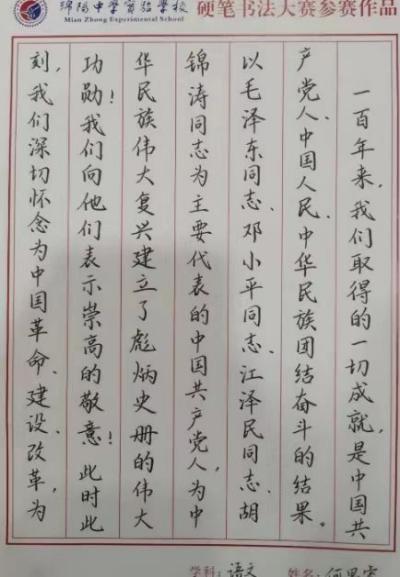 绵阳中学实验学校
Mian Zhong Experimental School
硬笔书法大赛参赛作品
一百年来,我们取得的一切成就,是中国共
产党人、中国人民、中华民族团结奋斗的结果。
以毛泽东同志、邓小平同志、江泽民同志、胡
锦涛同志为主要代表的中国共产党人,为中
华民族伟大复兴建立了彪炳史册的伟大
功勋!我们向他们表示崇高的敬意!此时此
刻,我们深切怀念为中国革命、建设、改革,为
学科:语文
姓名:何